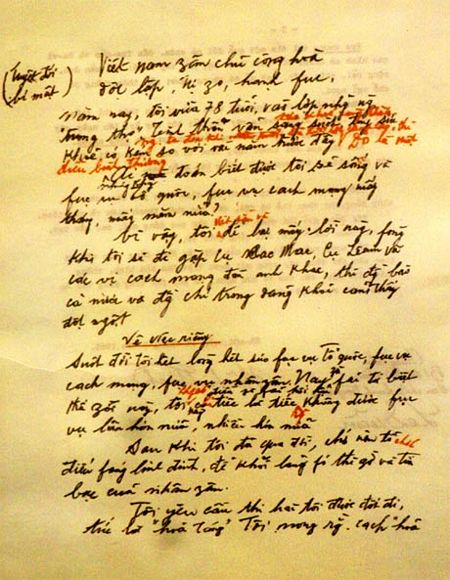 (Tuyệt đối
bí mật)
Việt nam zân chủ cộng hoà
độc lập, tự zo, hạnh fúc.
Năm nay, tôi vừa 78 tuổi, vào lớp những ng.
"trung thọ". Tinh thần vẫn sáng suốt, tuy sức
khoẻ có kém so với vài năm trước đây. Đó là một
điều bình thường
Ai mà đoán biết được tôi sẽ sống và
fục vụ tổ quốc, fục vụ cách mạng mấy
tháng, mấy năm nữa?
Vì vậy, tôi để lại mấy lời này, fòng
khi tôi sẽ đi gặp cụ Các Mác, cụ Lênin và
các vị cách mạng đàn anh khác, thì đg bào
cả nước và đg chí trong đảng khỏi cảm thấy
đột ngột
Về việc riêng
Suốt đời tôi hết lòng hết sức fục vụ tổ quốc, fục vụ
cách mạng, fục vụ nhân zân. Nay zù fải từ biệt
điều gì fải hối hận
thế zới này, tôi chỉ tiếc là tiếc không được fục
vụ lâu hơn nữa, nhiều hơn nữa
Sau khi tôi đã qua đời, chớ nên tổ chức
điếu fúng linh đình, để khỏi lãng fí thì giờ và tiền
bạc của nhân zân.
Tôi yêu cầu thi hài tôi được đốt đi,
tức là "hoả táng". Tôi mong rg. cách "hoả